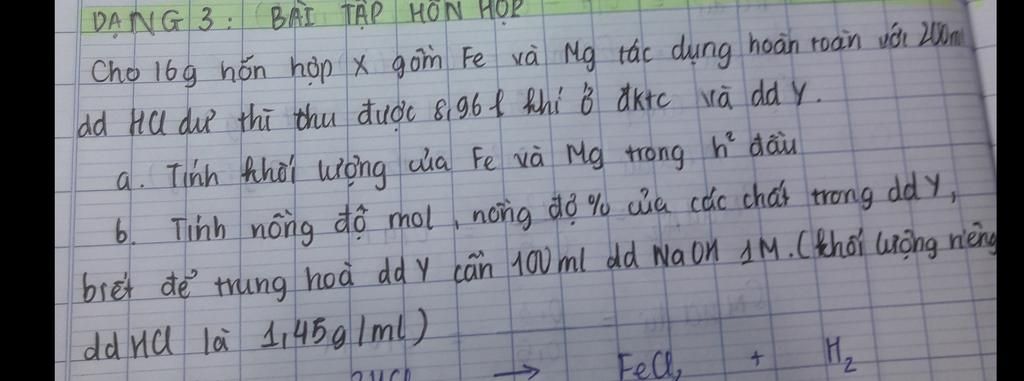 DẠNG 3: BÀI TẬP HỖN HỢP
Cho 16g hỗn hợp X gồm Fe và Mg tác dụng hoàn toàn với 200ml
dd HCl dư thì thu được 8,96 l khí ở đktc và dd Y.
a. Tính khối lượng của Fe và Mg trong h² đầu
b. Tính nồng độ mol, nồng độ % của các chất trong dd Y,
biết để trung hoà dd Y cần 100ml dd NaOH 1M. (khối lượng riêng
dd HCl là 1,45g/ml)
→ FeCl₂ + H₂